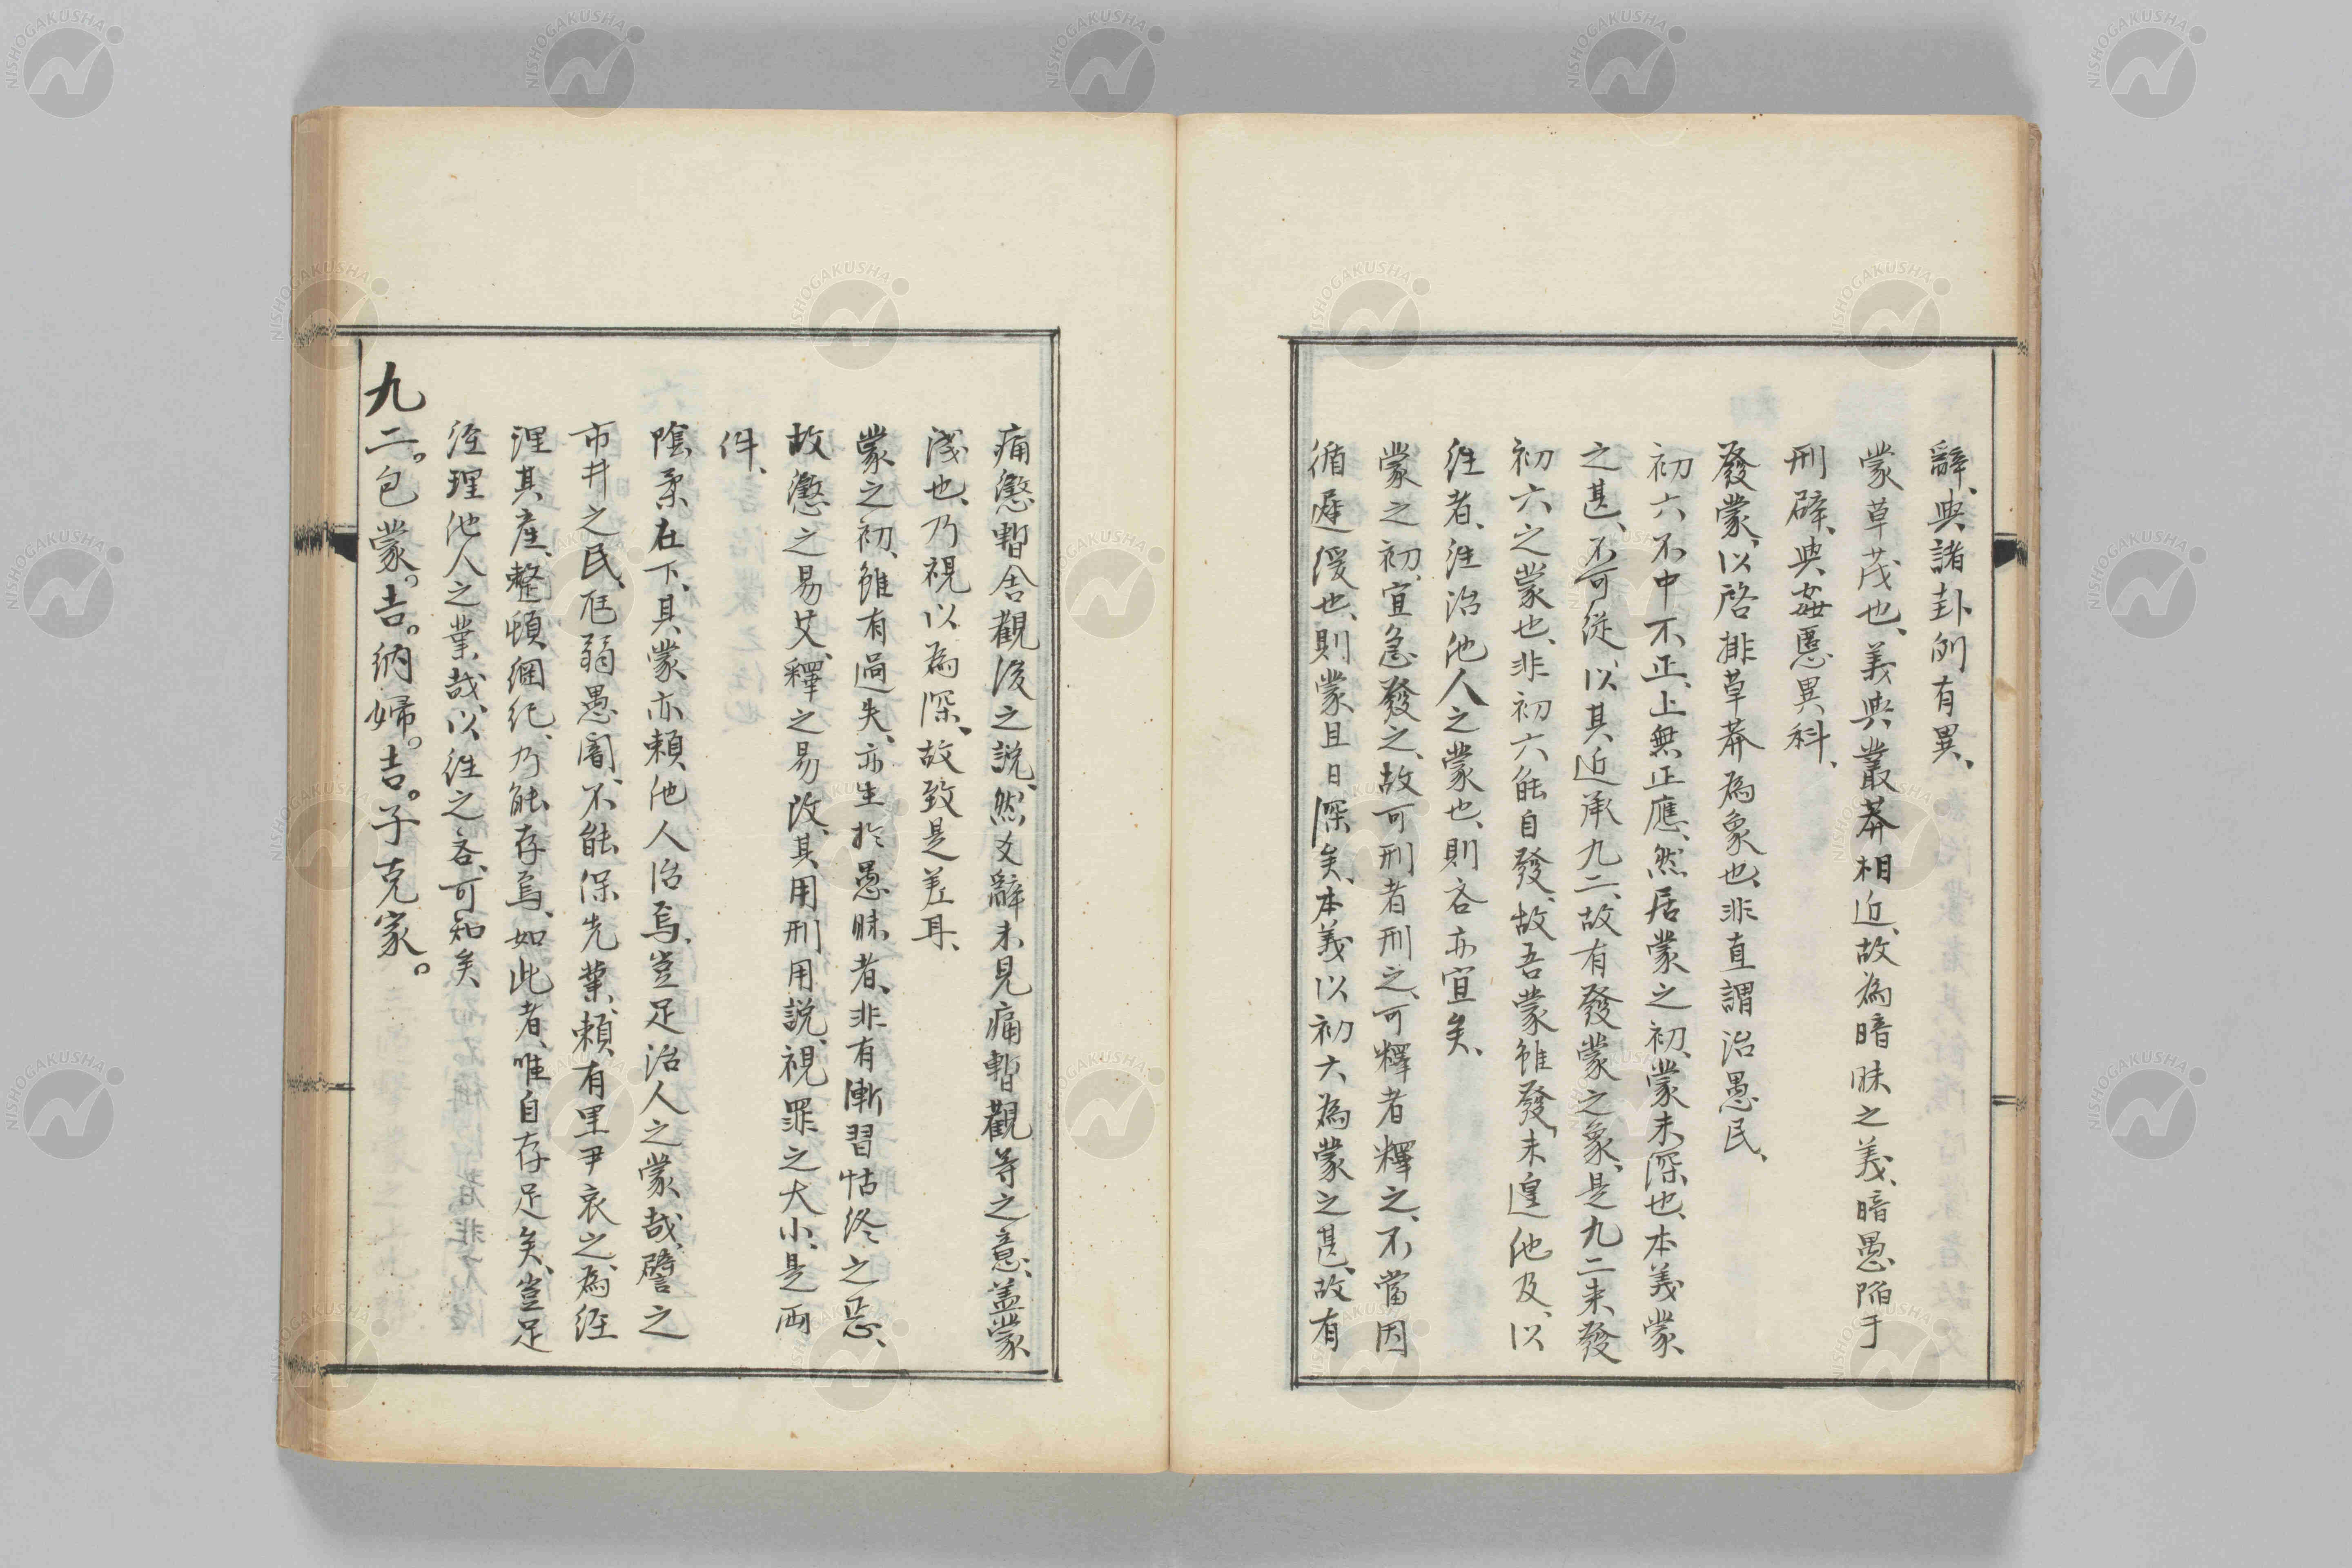 辭、與諸卦例有異、
蒙草茂也、義與叢莽相近、故為暗昧之義、暗愚陷于
刑辟、與姦慝異科、
發蒙、以啓排草莽為象也、非直謂治愚民、
初六不中不正、上無正應、然居蒙之初、蒙未深也、本義蒙
之甚、不可從、以其近承九二、故有發蒙之象、是九二来發
初六之蒙也、非初六能自發、故吾蒙雖發、未遑他及、以
往者、往治他人之蒙也、則吝亦宜矣、
蒙之初、宜急發之、故可刑者刑之、可釋者釋之、不當因
循遅緩也、則蒙且日深矣、本義以初六為蒙之甚、故有
痛懲暫舍觀後之説、然爻辭未見痛暫觀等之意、盖蒙
淺也、乃視以為深、故致是差耳、
蒙之初、雖有過失、亦生於愚昧者、非有漸習怙終之惡、
故懲之易艾、釋之易改、其用刑用説、視罪之大小、是両
件、
陰柔在下、其蒙亦頼他人治焉、豈足治人之蒙哉、譬之
市井之民、尫弱愚闇、不能保先業、頼有里尹哀之、為經
理其産、整頓綱紀、乃能存焉、如此者、唯自存足矣、豈足
經理他人之業哉、以往之吝、可知矣
九二。包蒙。吉。納婦。吉。子克家。
NISHOGAKUSHA